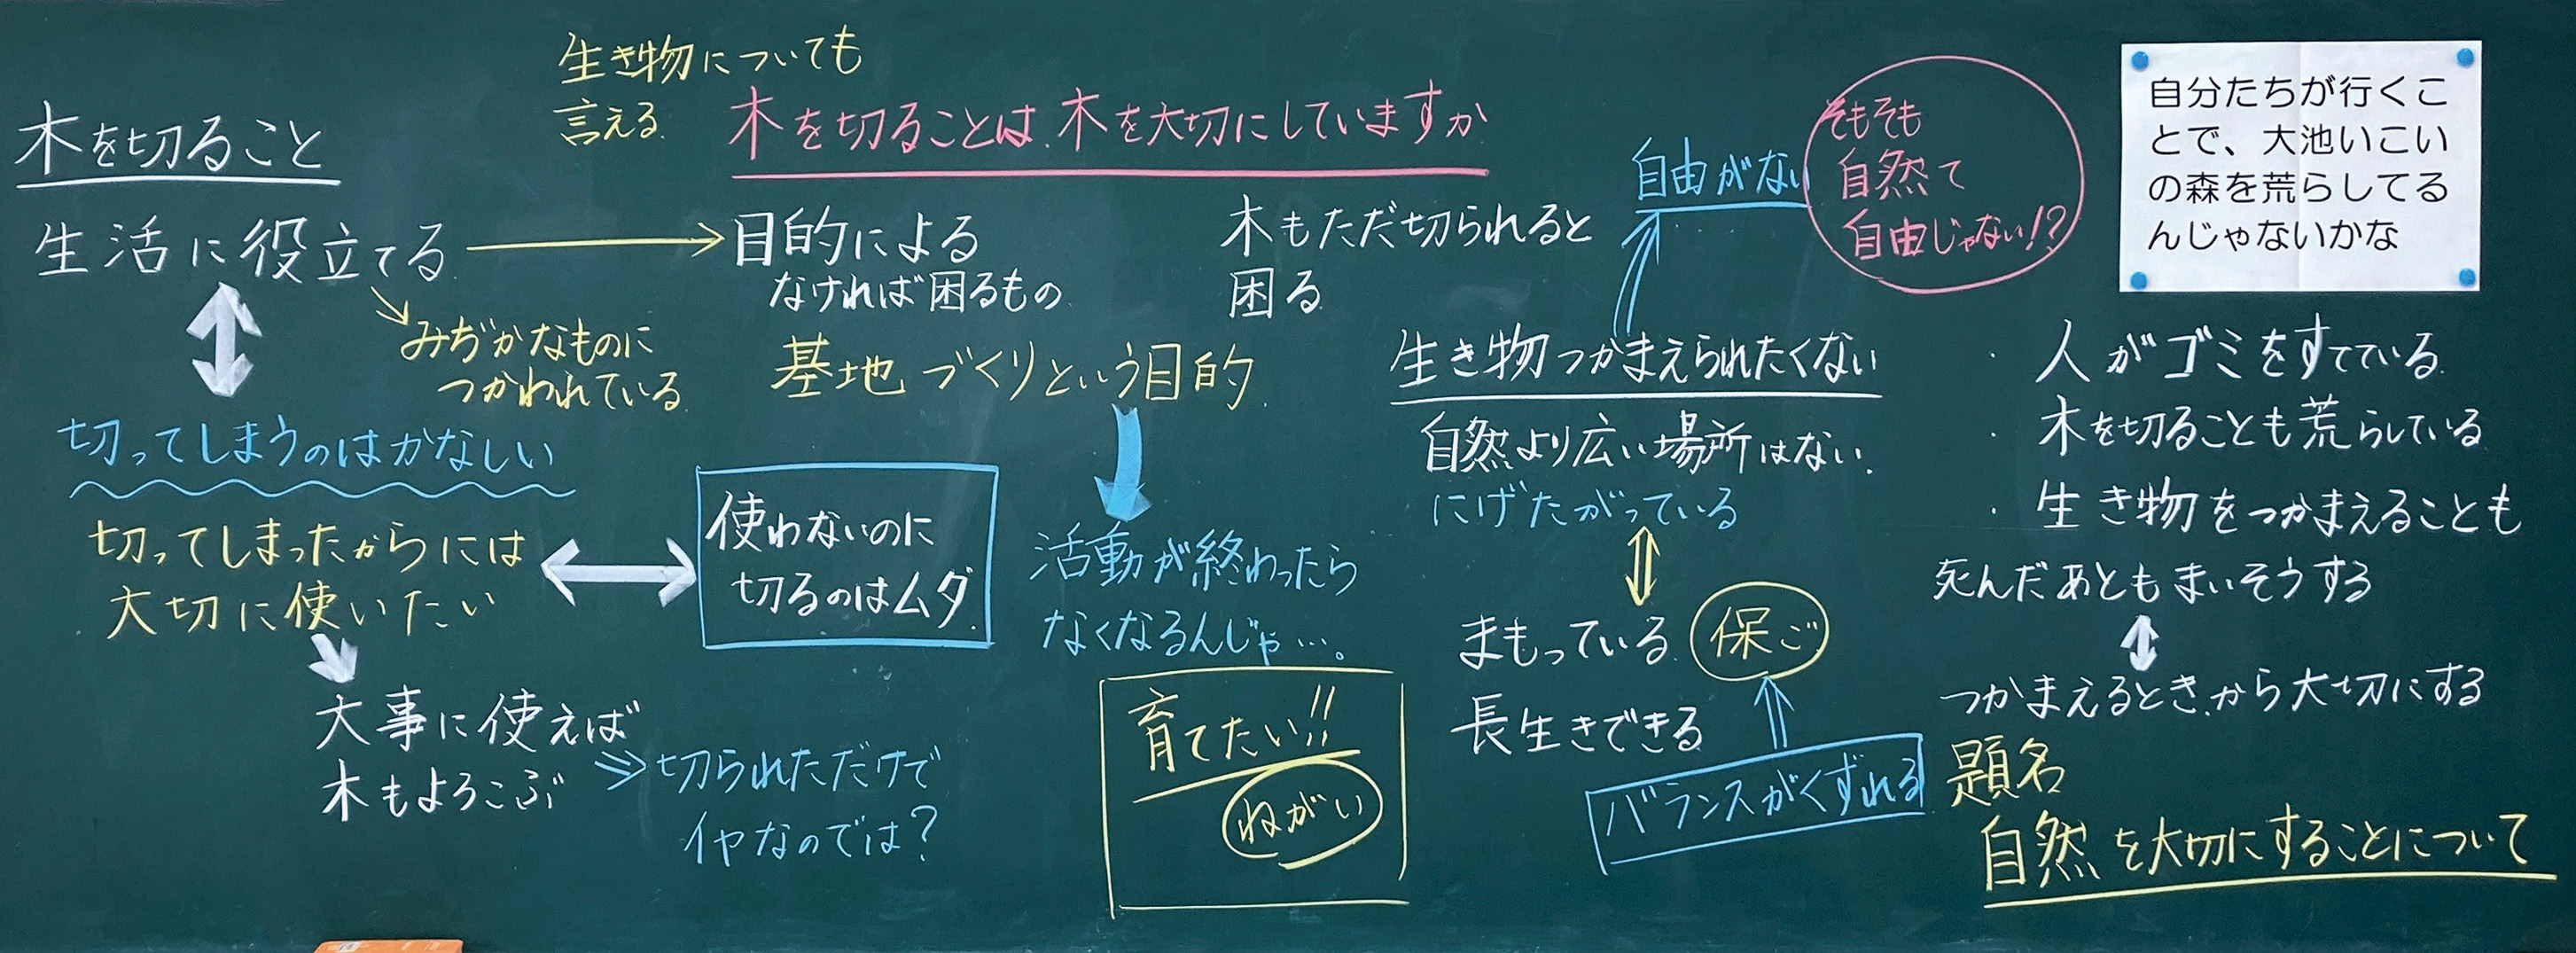 木を切ること
生活に役立てる
みぢかなものに
つかわれている
切ってしまうのはかなしい
切ってしまったからには
大切に使いたい
大事に使えば
木もよろこぶ
切られただけで
イヤなのでは?
使わないのに
切るのはムダ
生き物についても
言える
木を切ることは、木を大切にしていますか
目的による
なければ困るもの
基地づくりという目的
活動が終わったら
なくなるんじゃ…。
育てたい!!
ねがい
木もただ切られると
困る
自由がない
そもそも
自然て
自由じゃない!?
生き物つかまえられたくない
自然より広い場所はない.
にげたがっている
まもっている
保ご
長生きできる
バランスがくずれる
自分たちが行くこ
とで、大池いこい
の森を荒らしてる
んじゃないかな
・人がゴミをすてている
・木を切ることも荒らしている
・生き物をつかまえることも
死んだあともまいそうする
つかまえるときから大切にする
題名
自然を大切にすることについて